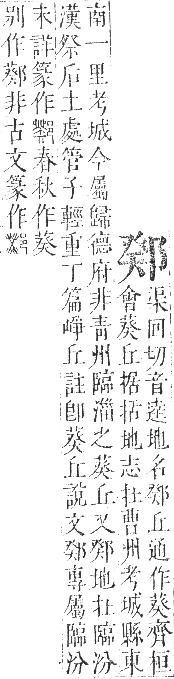 鄈
渠回切音逵地名鄈丘通作葵齊桓
會葵丘據括地志在曹州考城縣東
南一里考城今屬歸德府非青州臨淄之葵丘又鄈地在臨汾
漢祭后土處管子輕重丁篇崢丘註卽葵丘說文鄈專屬臨汾
未詳篆作春秋作葵
別作鄈非古文篆作